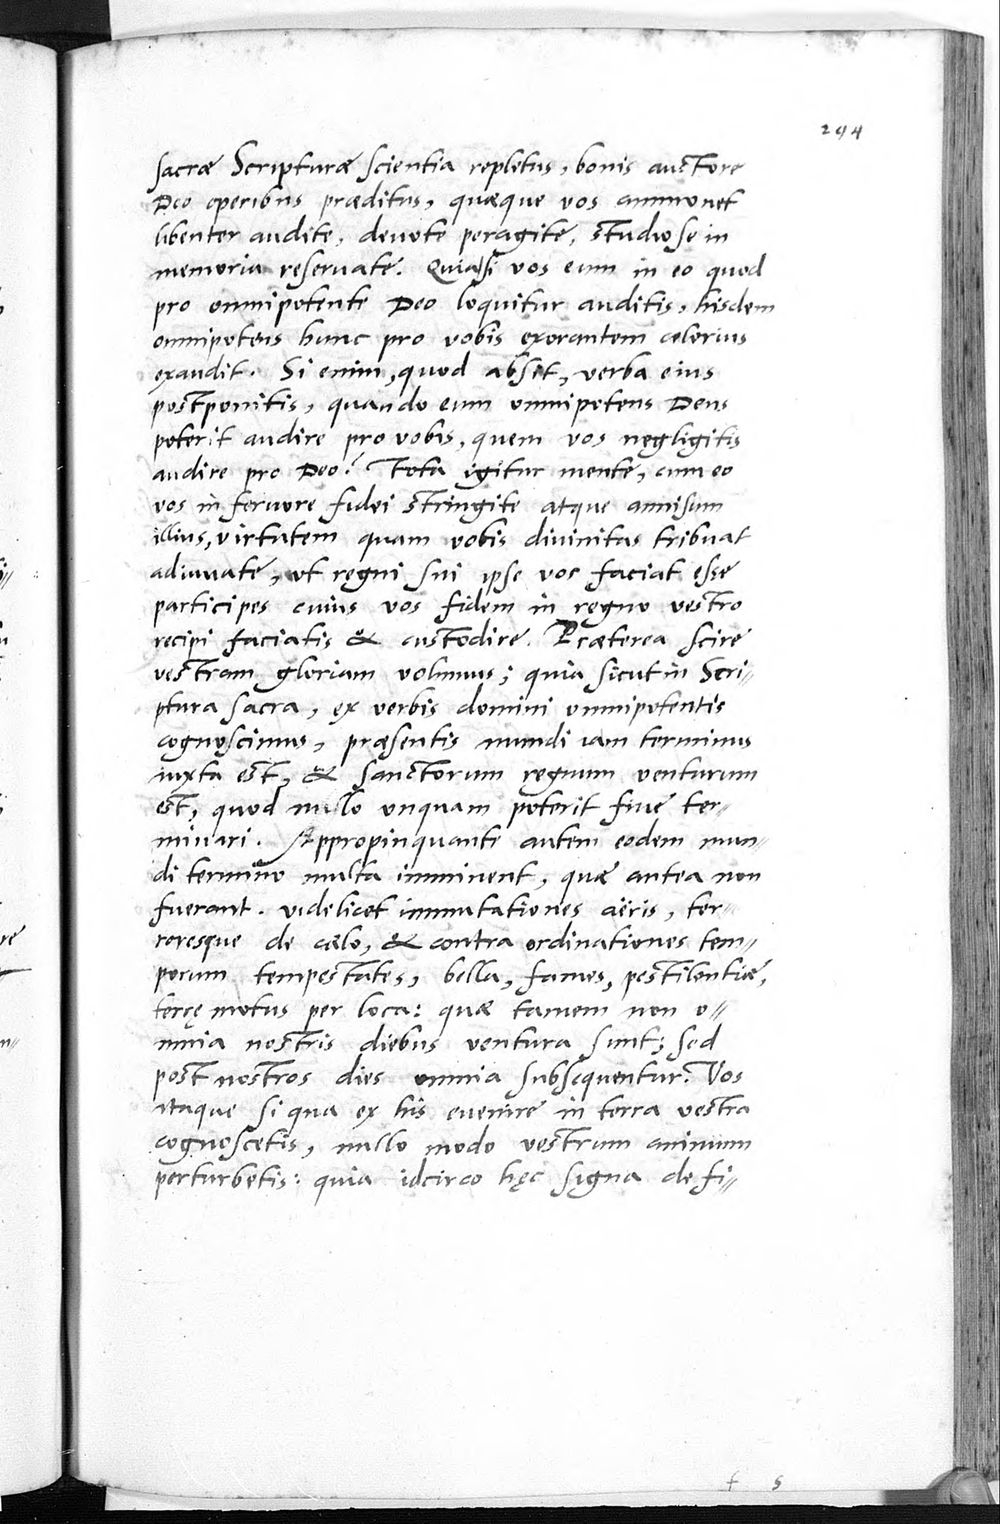 294
sacræ Scripturæ scientia repletus, bonis auctore
Deo operibus præditus, quæque vos ammonet
libenter audite, devote peragite, studiose in
memoria reservate. Quia si vos eum in eo quod
pro omnipotente Deo loquitur auditis, hisdem
omnipotens hunc pro vobis exorantem celerius
exaudit. Si enim, quod absit, verba eius
postponitis, quando eum omnipotens Deus
poterit audire pro vobis, quem vos negligitis
audire pro Deo? Tota igitur mente, cum eo
vos in fervore fidei stringite atque annisum
illius, virtutem quam vobis divinitas tribuat
adiuvate, ut regni sui ipse vos faciat esse
participes cuius vos fidem in regno vestro
recipi faciatis & custodire. Præterea scire
vestram gloriam volumus; quia sicut in Scri=
ptura sacra, ex verbis domini omnipotentis
cognoscimus, præsentis mundi iam terminus
iuxta est, & sanctorum regnum venturum
est, quod nullo unquam poterit fine ter=
minari. Appropinquante autem eodem mun=
di termino multa imminent, quæ antea non
fuerant. videlicet inmutationes aëris, ter=
roresque de cælo, & contra ordinationes tem=
porum tempestates, bella, fames, pestilentiæ,
terrę motus per loca: quæ tamen non o=
mnia nostris diebus ventura sunt; sed
post nostros dies omnia subsequentur. Vos
itaque si qua ex his evenire in terra vestra
cognoscetis, nullo modo vestrum animum
perturbetis: quia idcirco hęc signa de fi=
f 5